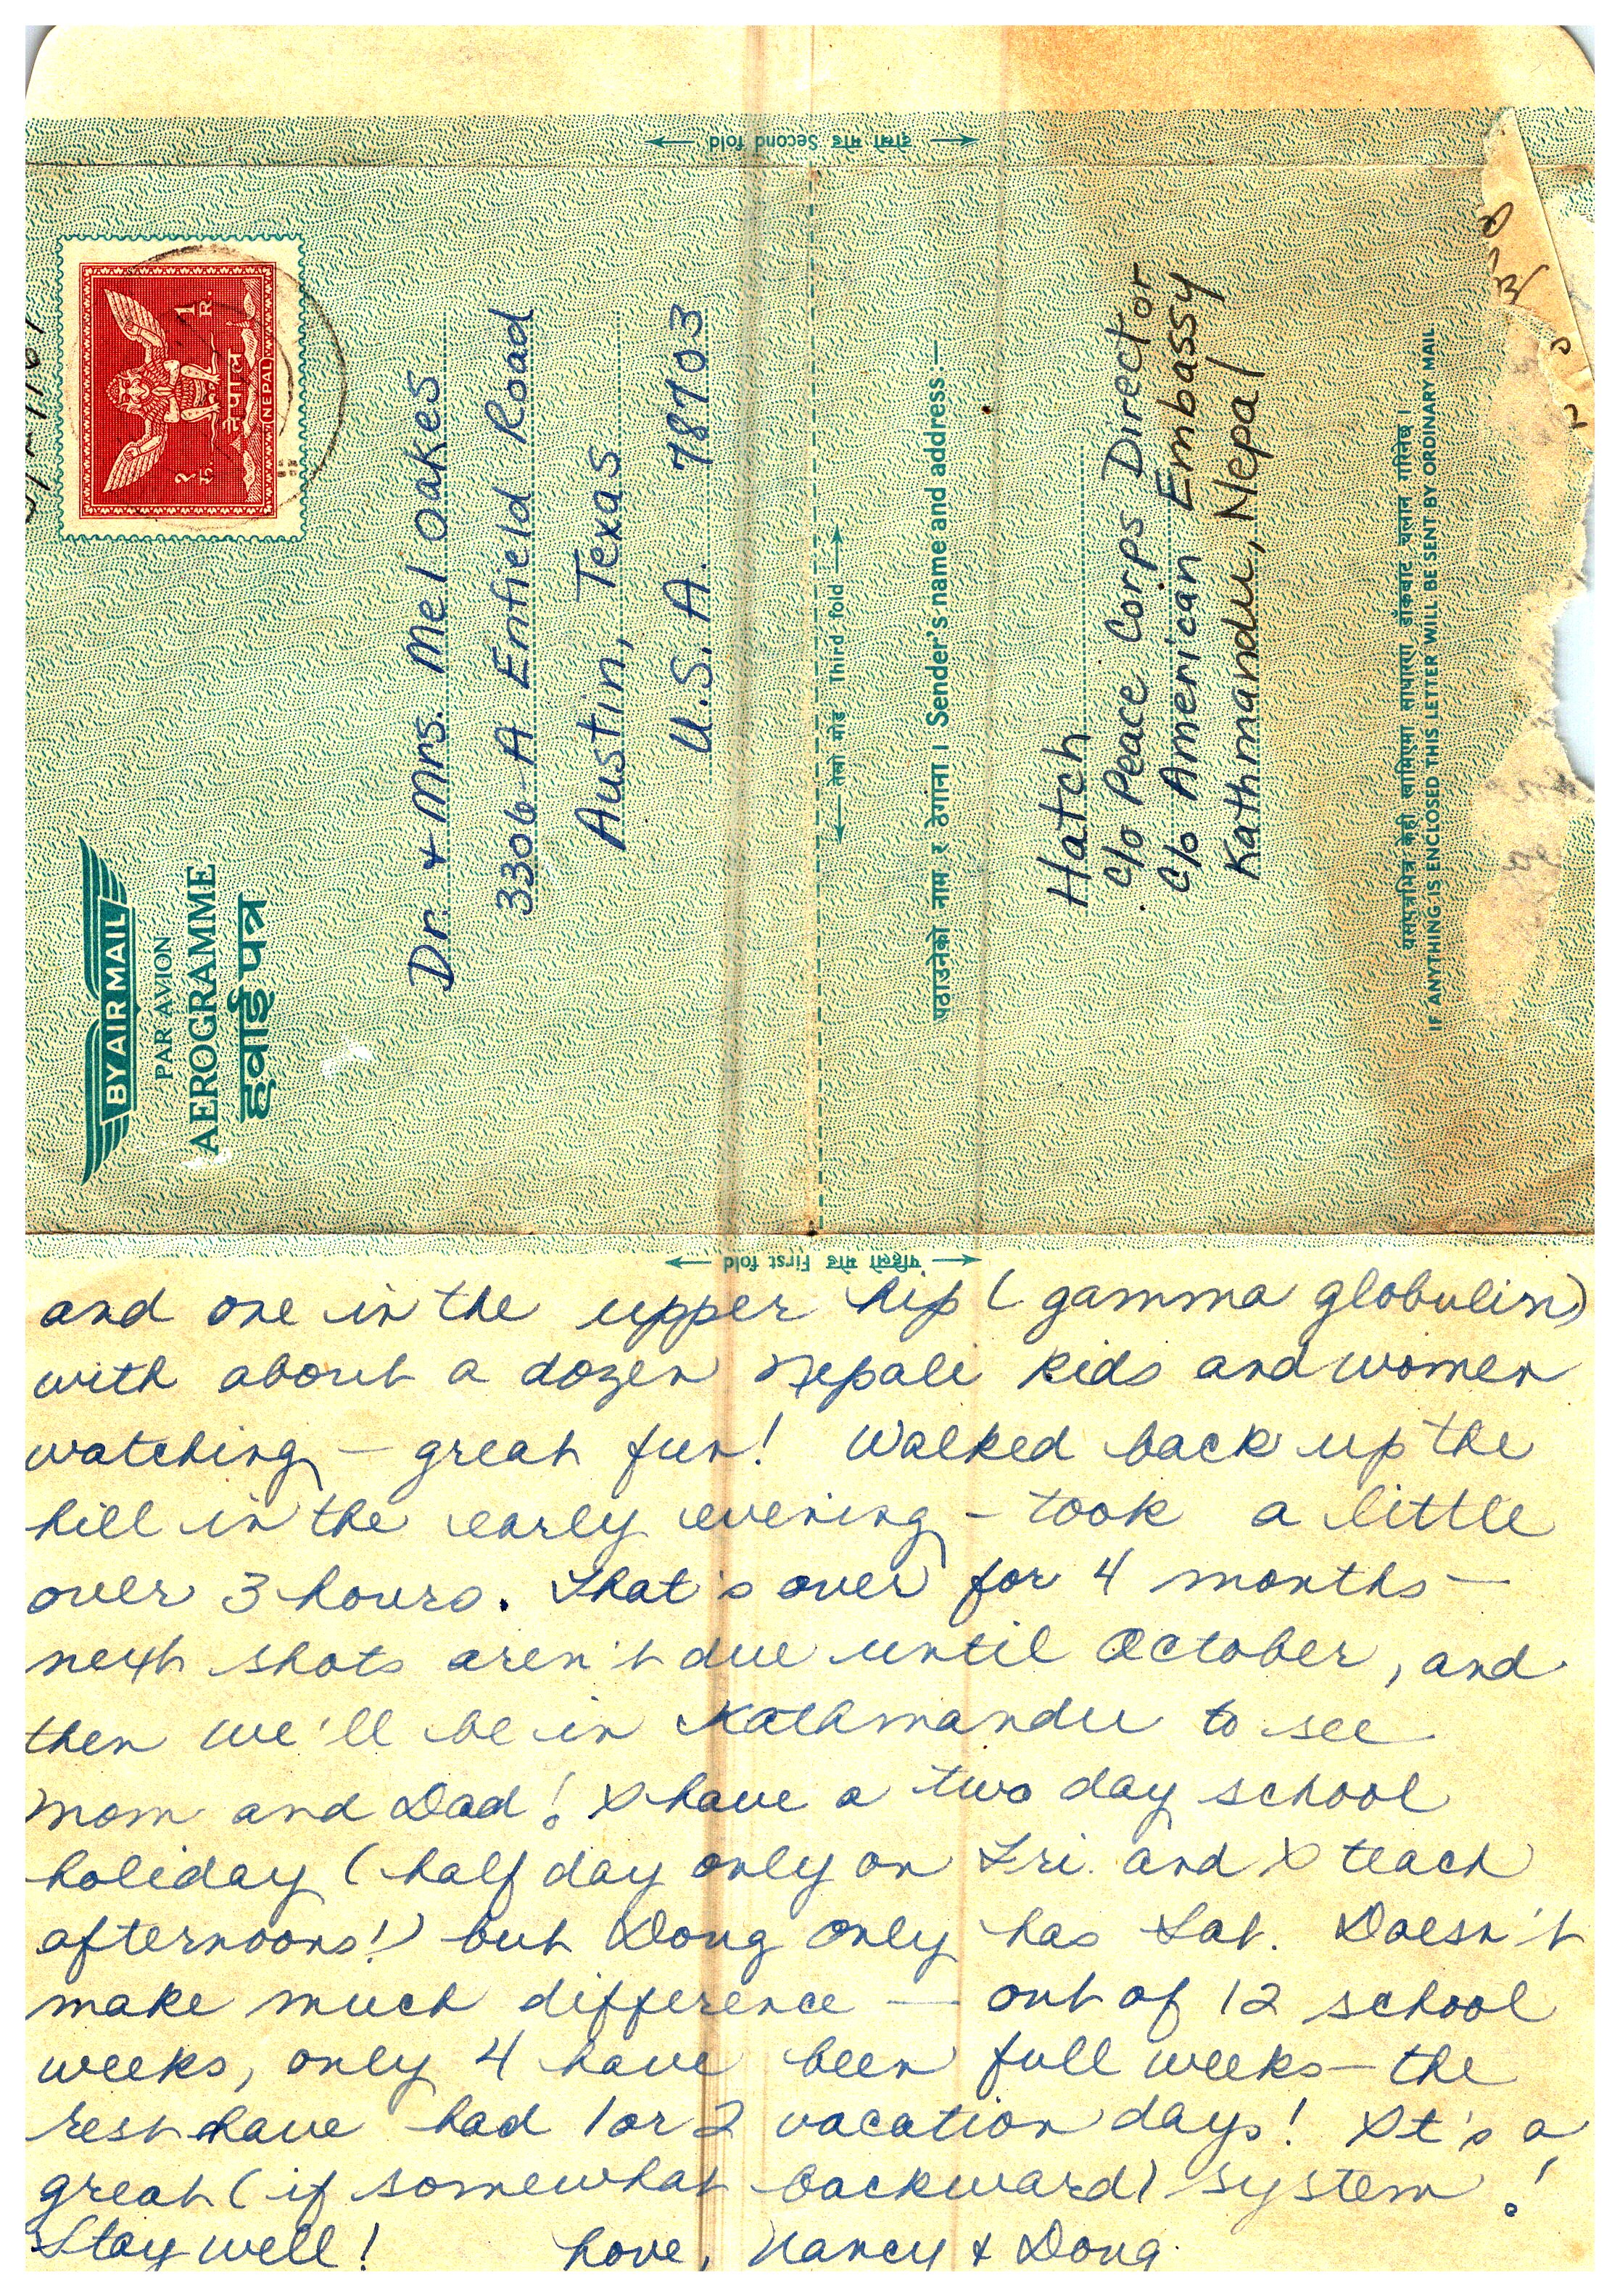 दोस्रो मोड Second fold
१
रु.
नेपाल
(NEPAL)
1
R.
BY AIR MAIL
PAR AVION
AEROGRAMME
हवाई पत्र
Dr. + Mrs. Mel Oakes
3306-A Enfield Road
Austin, Texas
U.S.A. 78703
तेस्रो मोड Third fold
पठाउनेको नाम र ठेगाना । Sender's name and address:—
Hatch
c/o Peace Corps Director
c/o American Embassy
Kathmandu, Nepal
यसपत्रभित्र केही खामिएमा साधारण डाँकबाट चलान गरिनेछ ।
IF ANYTHING IS ENCLOSED THIS LETTER WILL BE SENT BY ORDINARY MAIL
पहिलो मोड First fold
and one in the upper hip (gamma globulin)
with about a dozen Nepali kids and women
watching – great fun! Walked back up the
hill in the early evening – took a little
over 3 hours. That's over for 4 months –
next shots aren't due until October, and
then we'll be in Kathmandu to see
Mom and Dad! I have a two day school
holiday (half day only on Fri. and I teach
afternoons!) but Doug only has Sat. Doesn't
make much difference — out of 12 school
weeks, only 4 have been full weeks – the
rest have had 1 or 2 vacation days! It's a
great (if somewhat backward) system!
Stay well! Love, Nancy + Doug